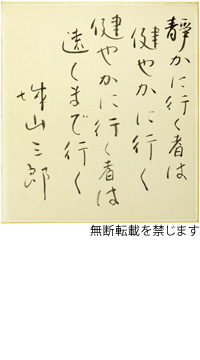 靜かに行く者は
健やかに行く
健やかに行く者は
遠くまで行く
城山三郎
無断転載を禁じます